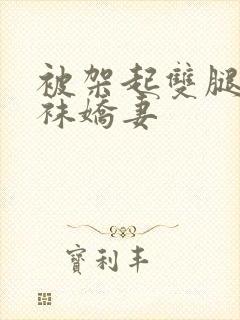 被架起雙腿
袜嬌妻
寶利丰